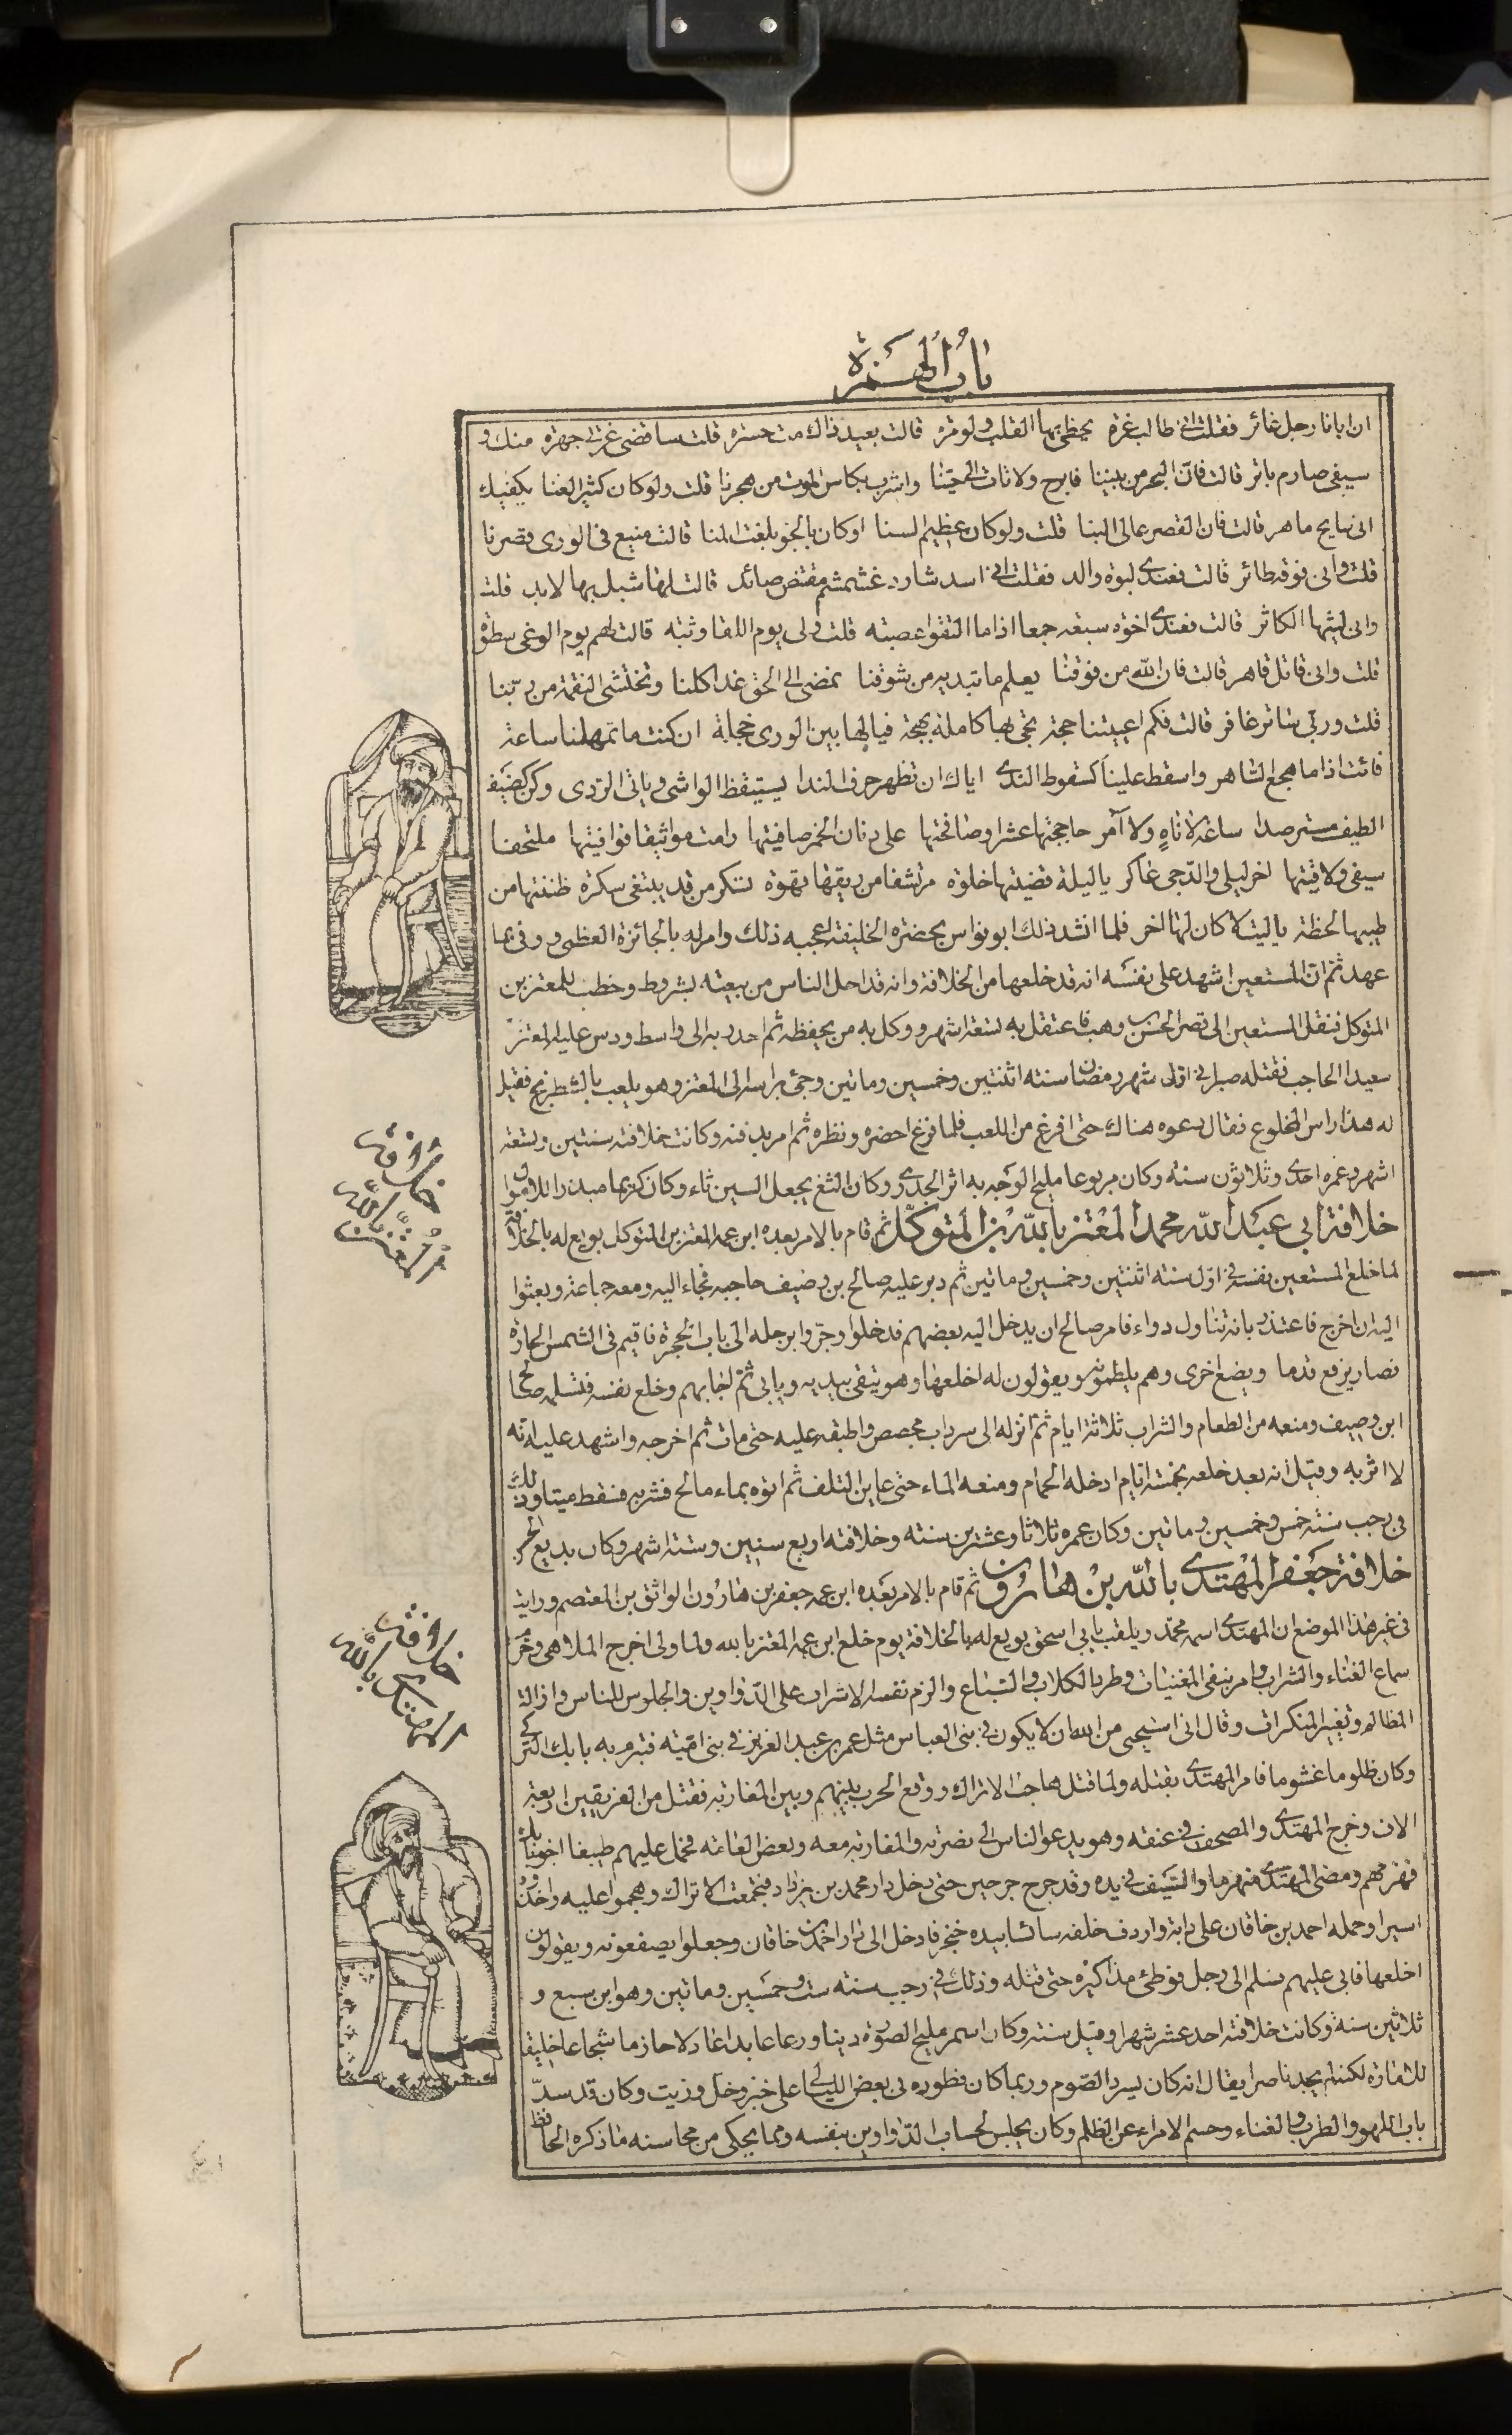 باب الهمزة
ان ابانا رجل غائر فقلت انى طالب غرة يحظى بها القلب ولو مره قالت بعيد ذاك مت حسره قلت ساقضى غرتى جهره منك و
سيفى صارم باتر قالت فان البحر من بيننا فابرح ولا تات الى حينا واشرب بكاس الموت من هجرنا قلت ولو كان كثير العنا يكفيك
انى سابح ماهر قالت فان القصر عالى البنا قلت ولو كان عظيم السنا او كان بالجو بلغت المنا قالت منيع فى الورى قصرنا
قلت وانى فوقه طائر قالت فعندى لبوة والد فقلت انى اسد شارد غشمشم مقتنص صائد قالت لها شبل بها لابد قلت
وانى ليثها الكاثر قالت فعندى اخوة سبعه جمعا اذا ما التقوا عصبته قلت ولى يوم اللقا وثبه قالت لهم يوم الوغى سطوة
قلت وانى قاتل قاهر قالت فان الله من فوقنا يعلم ما تبديه من شوقنا نمضى الى الحق غدا كلنا ونختشى النقمة من ربنا
قلت وربى ساتر غافر قالت فكم اعييتنا حجة تجى بها كاملة بهجة فيالها بين الورى خجلة ان كنت ما تمهلنا ساعة
فائت اذا ما هجع الساهر واسقط علينا كسقوط الندى اياك ان تظهر حرف الندا يستيقظ الواشى وياتى الردى وكن كضيف
الطيف مسترصدا ساعة لا ناه ولا آمر حاججتها عشرا وصافحتها على دنان الخمر صافيتها رامت مواثيقا فوافيتها ملتحفا
سيفى ولاقيتها اخر ليلى والدجى عاكر ياليلة قضيتها خلوة مرتشفا من ريقها قهوة تسكر من قد يبتغى سكرة ظننتها من
طيبها لحظة ياليت لا كان لها اخر فلما انشد ذلك ابو نواس بحضرة الخليفة اعجبه ذلك وامر له بالجائزة العظمى ووفى بما
عهد ثم ان المستعين اشهد على نفسه انه قد خلعها من الخلافة وانه قد احل الناس من بيعته بشروط وخطب للمعتز بن
المتوكل فنقل المستعين الى قصر الحسن بن وهب فاعتقل به تسعة اشهر ووكل به من يحفظه ثم احدر به الى واسط ودس عليه المعتز
سعيدا الحاجب فقتله صبرا فى اول شهر رمضان سنة اثنتين وخمسين ومائتين وجئ براسه الى المعتز وهو يلعب بالشطرنج فقيل
له هذا راس المخلوع فقال دعوه هناك حتى افرغ من اللعب فلما فرغ احضره ونظره ثم امر بدفنه وكانت خلافته سنتين وتسعة
اشهر وعمره احدى وثلاثون سنة وكان مربوعا مليح الوجه به اثر الجدرى وكان الثغ يجعل السين ثاء وكان كريما مبذرا للاموال
خلافة ابى عبد الله محمد المعتز بالله بن المتوكل ثم قام بالامر بعده ابن عمه المعتز بن المتوكل بويع له بالخلافة
لما خلع المستعين نفسه فى اول سنة اثنتين وخمسين ومائتين ثم دبر عليه صالح بن وصيف حاجبه فجاء اليه ومعه جماعة وبعثوا
اليه ان اخرج فاعتذر بانه تناول دواء فامر صالح ان يدخل اليه بعضهم فدخلوا وجروا برجله الى باب الحجرة فاقيم فى الشمس الحارة
فصار يرفع قدما ويضع اخرى وهم يلطمونه ويقولون له اخلعها وهو يتقى بيديه ويابى ثم اجابهم وخلع نفسه فتسلمه صالح
ابن وصيف ومنعه من الطعام والشراب ثلاثة ايام ثم انزله الى سرداب مجصص واطبقه عليه حتى مات ثم اخرجه واشهد عليه انه
لا اثر به وقيل انه بعد خلعه بخمسة ايام ادخله الحمام ومنعه الماء حتى عاين التلف ثم اتوه بماء مالح فشربه فسقط ميتا وذلك
فى رجب سنة خمس وخمسين ومائتين وكان عمره ثلاثا وعشرين سنة وخلافته اربع سنين وستة اشهر وكان بديع الحسن
خلافة جعفر المهتدى بالله بن هارون ثم قام بالامر بعده ابن عمه جعفر بن هارون الواثق بن المعتصم ورايت
فى غير هذا الموضع ان المهتدى اسمه محمد ويلقب بابى اسحق بويع له بالخلافة يوم خلع ابن عمه المعتز بالله ولما ولى اخرج الملاهى وحرم
سماع الغناء والشراب وامر بنفى المغنيات وطرد الكلاب والسباع والزم نفسه الاشراف على الدواوين والجلوس للناس وازالة
المظالم وتغيير المنكرات وقال انى استحيى من الله ان لا يكون فى بنى العباس مثل عمر بن عبد العزيز فى بنى امية فتبرم به بابك التركى
وكان ظلوما غشوما فامر المهتدى بقتله ولما قتل هاجت الاتراك ووقع الحرب بينهم وبين المغاربة فقتل من الفريقين اربعة
الاف وخرج المهتدى والمصحف فى عنقه وهو يدعو الناس الى نصرته والمغاربة معه وبعض العامة فحمل عليهم طيبغا اخو بابك
فهزمهم ومضى المهتدى منهزما والسيف فى يده وقد جرح جرحين حتى دخل دار محمد بن يزداد فتجمعت الاتراك وهجموا عليه واخذوه
اسيرا وحمله احمد بن خاقان على دابة واردف خلفه سائسا بيده خنجر فادخل الى دار احمد بن خاقان وجعلوا يصفعونه ويقولون
اخلعها فابى عليهم فسلم الى رجل فوطئ مذاكيره حتى قتله وذلك فى رجب سنة ست وخمسين ومائتين وهو ابن سبع و
ثلاثين سنة وكانت خلافته احد عشر شهرا وقيل سنة وكان اسمر مليح الصورة دينا ورعا عابدا عادلا حازما شجاعا خليقا
للامارة لكنه لم يجد ناصرا يقال انه كان يسرد الصوم وربما كان فطوره فى بعض الليالى على خبز وخل وزيت وكان قد سد
باب اللهو والطرب والغناء وحسم الامراء عن الظلم وكان يجلس لحساب الدواوين بنفسه ومما يحكى من محاسنه ما ذكره الحافظ
خلافة
المعتز بالله
خلافة
المهتدى بالله